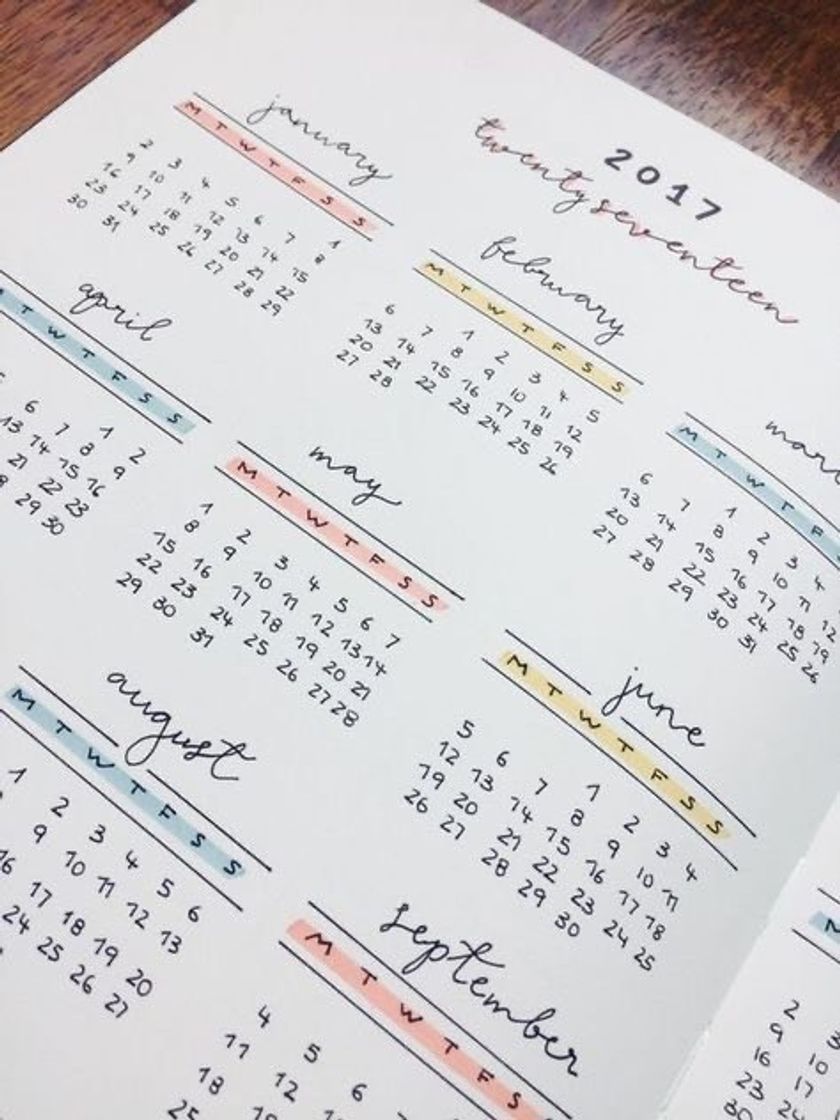 2017
twenty seventeen
january
M T W T F S S
1
2 3 4 5 6 7 8
9 10 11 12 13 14 15
16 17 18 19 20 21 22
23 24 25 26 27 28 29
30 31
february
M T W T F S S
1 2 3 4 5
6 7 8 9 10 11 12
13 14 15 16 17 18 19
20 21 22 23 24 25 26
27 28
mar
M T W T F S
1 2 3 4
6 7 8 9 10 11 12
13 14 15 16 17 18 19
20 21 22 23 24 25 26
27 28 29 30 31
april
T W T F S S
1 2
6 7 8 9
13 14 15 16
21 22 23
29 30
may
M T W T F S S
1 2 3 4 5 6 7
8 9 10 11 12 13 14
15 16 17 18 19 20 21
22 23 24 25 26 27 28
29 30 31
june
M T W T F S S
1 2 3 4
5 6 7 8 9 10 11
12 13 14 15 16 17 18
19 20 21 22 23 24 25
26 27 28 29 30
august
M T W T F S S
1 2 3 4 5 6
9 10 11 12 13
16 17 18 19 20
24 25 26 27
september
M T W T F S
4 5 6
11 12
18 19
25
M
2 3
9 10
16 17
23 24
30